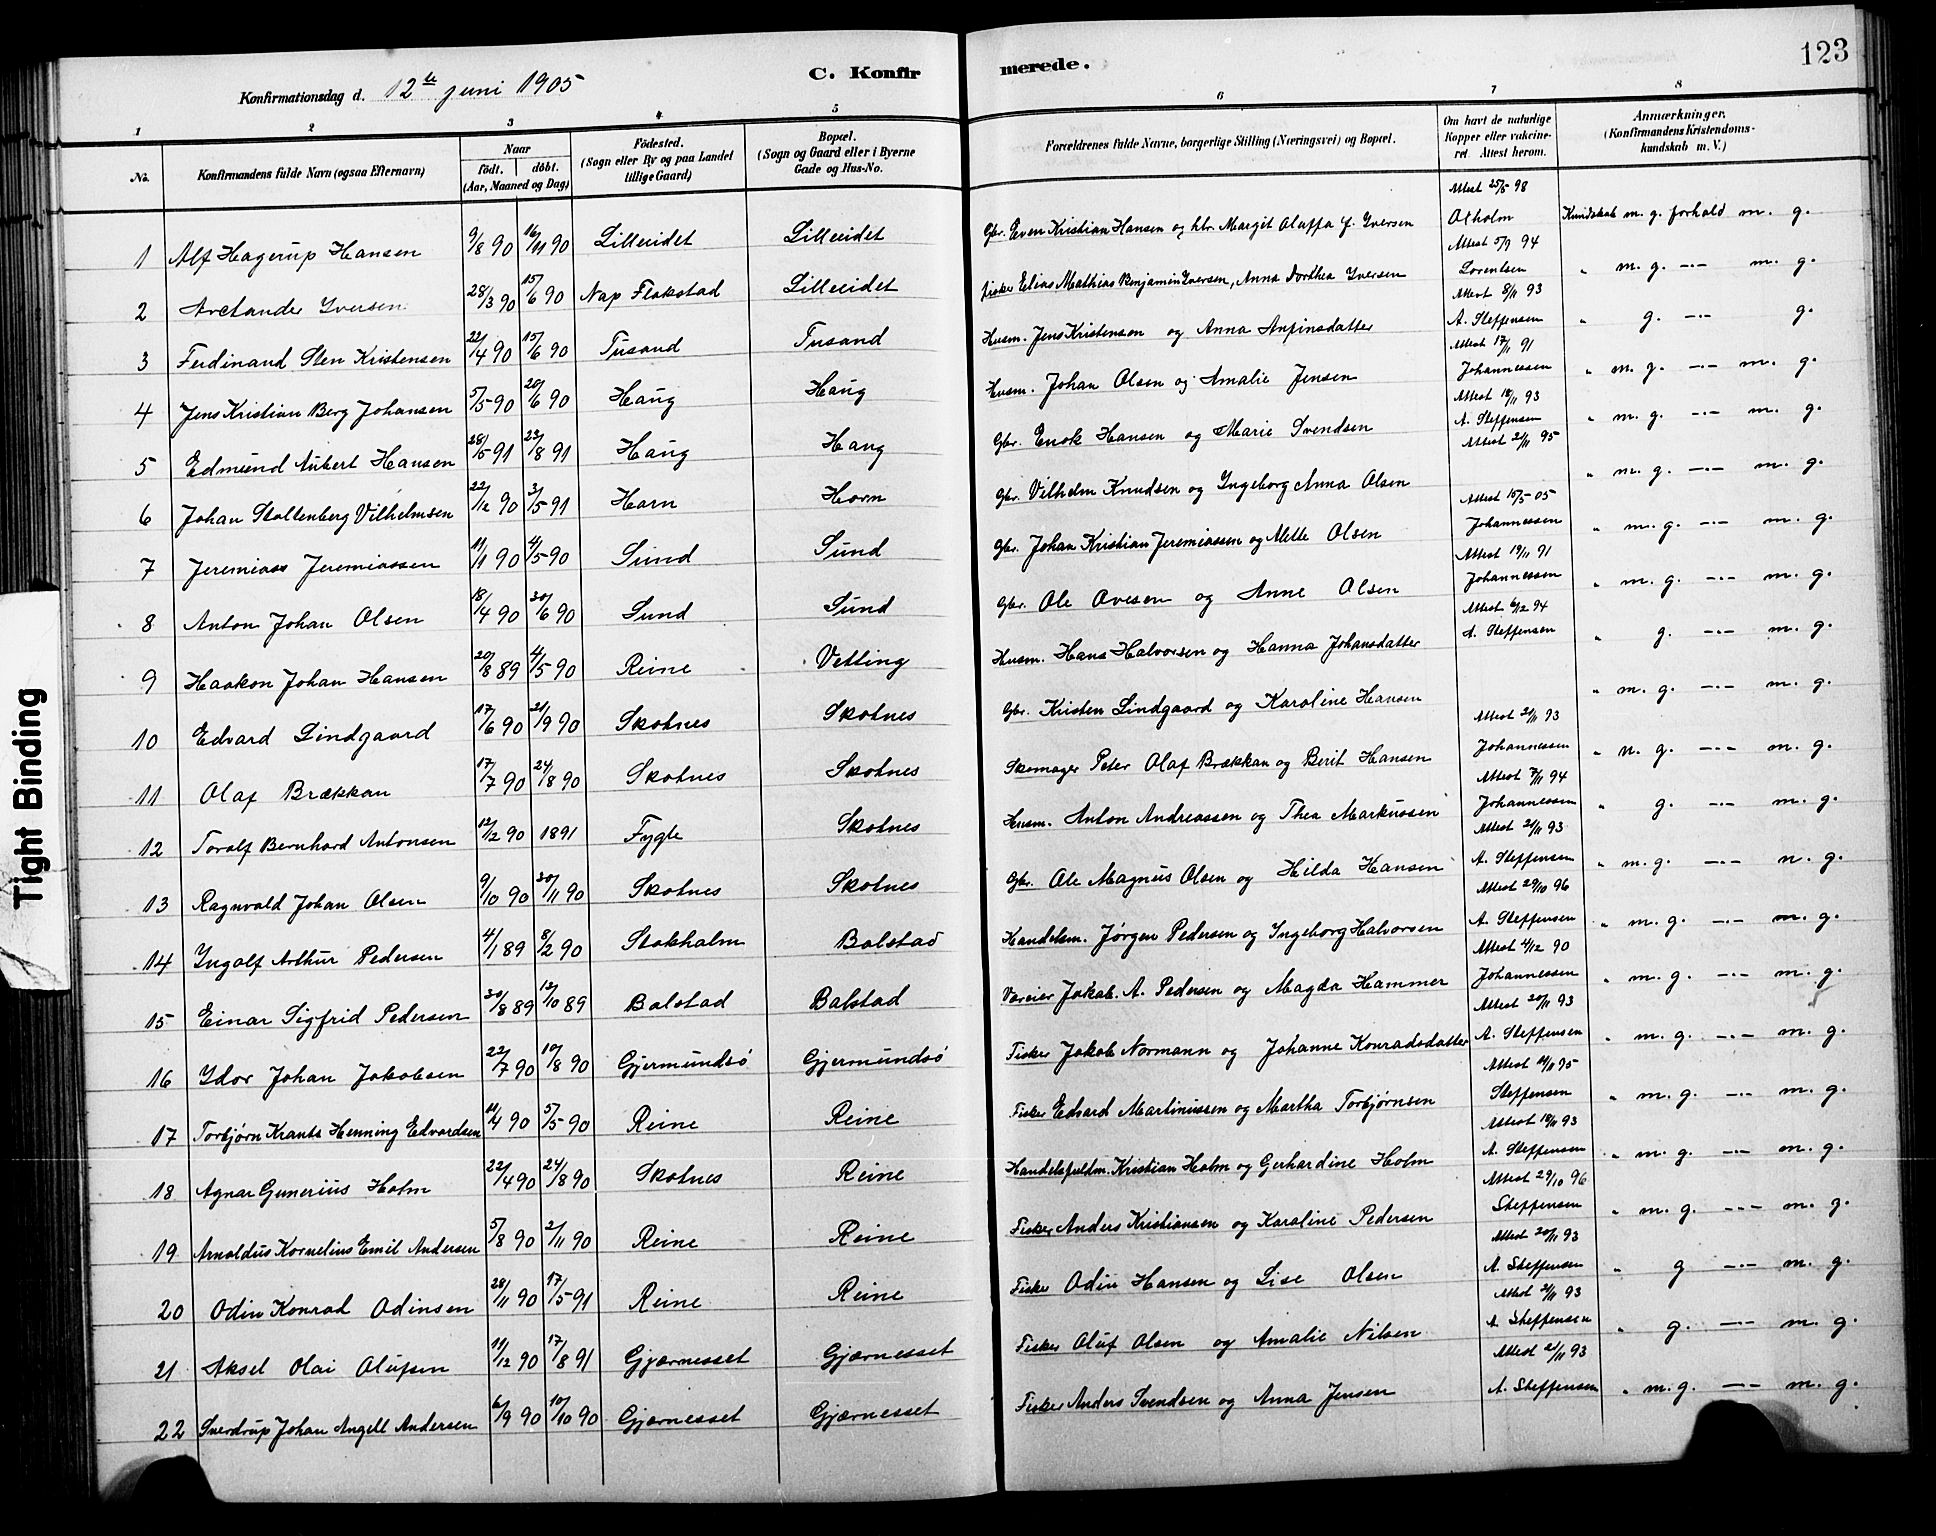 123
C. Konfir merede.
Konfirmationsdag d. 12te juni 1905
1 2 3 4 5 6 7 8
No. Konfirmandens fulde Navn (ogsaa Efternavn) Naar født. døbt. (Aar, Maaned og Dag) Fødested. (Sogn eller By og paa Landet tillige Gaard) Bopæl. (Sogn og Gaard eller i Byerne Gade og Hus-No. Forældrenes fulde Navne, borgerlige Stilling (Næringsvei) og Bopæl. Om havt de naturlige Kopper eller vakcineret. Attest herom. Anmærkninger. (Konfirmandens Kristendomskundskab m. V.)
1 Alf Hagerup Hansen 9/8 90 16/11 90 Lilleeidet Lilleeidet Gbr. Even Kristian Hansen og htr. Margit Olaffa f. Iversen Attest 25/5 98 Olholm Kundskab m. g. forhold m. g.
2 Arctander Iversen 28/3 90 15/6 90 Nap Flakstad Lilleeidet Fisker Elias Mathias Benjamin Iversen, Anna Dorthea Iversen Attest 5/9 94 Lorentsen " m. g. -"- m. g.
3 Ferdinand Sten Kristensen 22/4 90 15/6 90 Tusand Tusand Husm. Jens Kristensen og Anna Anfinsdatter Attest 8/11 93 A. Steffensen " g. -"- g.
4 Jens Kristian Berg Johansen 5/5 90 20/6 90 Haug Haug Husm. Johan Olsen og Amalie Jensen Attest 17/1 91 Johannessen " m. g. -"- m. g.
5 Edmund Aubert Hansen 28/5 91 23/8 91 Haug Haug Gbr. Enok Hansen og Marie Svendsen Attest 18/11 93 A. Steffensen " m. g. -"- m. g.
6 Johan Stoltenberg Vilhelmsen 22/12 90 3/5 91 Horn Horn Gbr. Vilhelm Knudsen og Ingeborg Anna Olsen Attest 2/11 95 " m. g. -"- m. g.
7 Jeremiass Jeremiassen 11/1 90 4/5 90 Sund Sund Gbr. Johan Kristian Jeremiassen og Mette Olsen Attest 15/5 05 Johannessen " m. g. -"- m. g.
8 Anton Johan Olsen 18/4 90 30/6 90 Sund Sund Gbr. Ole Ovesen og Anne Olsen Attest 19/11 91 Johannessen " m. g. -"- m. g.
9 Haakon Johan Hansen 20/8 89 4/5 90 Reine Vetting Husm. Hans Halvorsen og Hanna Johansdatter Attest 6/12 94 A. Steffensen " g. -"- m. g.
10 Edvard Lindgaard 17/6 90 21/9 90 Skotnes Skotnes Gbr. Kristen Lindgaard og Karoline Hansen " m. g. -"- m. g.
11 Olaf Brækkan 17/7 90 24/8 90 Skotnes Skotnes Skomager Peter Olaf Brækkan og Berit Hansen Attest 21/11 93 Johannessen " m. g. -"- m. g.
12 Toralf Bernhard Antonsen 12/2 90 1891 Fygle Skotnes Husm. Anton Andreassen og Thea Markussen Attest 7/11 94 Johannessen " g. -"- m. g.
13 Ragnvald Johan Olsen 9/10 90 30/11 90 Skotnes Skotnes Gbr. Ole Magnus Olsen og Hilda Hansen Attest 21/11 93 A. Steffensen " m. g. -"- m. g.
14 Ingolf Arthur Pedersen 4/1 89 8/2 90 Stokholm Balstad Handelsm. Jørgen Pedersen og Ingeborg Halvorsen Attest 29/10 96 A. Steffensen " m. g. -"- m. g.
15 Einar Sigfrid Pedersen 30/8 89 13/10 89 Balstad Balstad Væreier Jakob. A. Pedersen og Magda Hammer Attest 4/12 90 Johannessen " m. g. -"- m. g.
16 Idor Johan Jakobsen 22/7 90 10/8 90 Gjermundsø Gjermundsø Fisker Jakob Normann og Johanne Konradsdatter Attest 20/11 93 A. Steffensen " m. g. -"- m. g.
17 Torbjørn Krants Henning Edvardsen 11/4 90 5/5 90 Reine Reine Fisker Edvard Martinussen og Martha Torbjørnsen Attest 14/11 95 Steffensen " m. g. -"- m. g.
18 Agnar Gunerius Holm 22/4 90 24/8 90 Skotnes Reine Handelsfuldm. Kristian Holm og Gerhardine Holm Attest 18/11 93 A. Steffensen " m. g. -"- m. g.
19 Arnoldus Kornelius Emil Andersen 5/8 90 2/11 90 Reine Reine Fisker Anders Kristiansen og Karoline Pedersen Attest 29/10 96 Steffensen " m. g. -"- m. g.
20 Odin Konrad Odinsen 28/11 90 17/5 91 Reine Reine Fisker Odin Hansen og Lise Olsen Attest 20/11 93 A. Steffensen " g -"- m. g.
21 Aksel Olai Olufsen 11/12 90 17/8 91 Gjærnesset Gjærnesset Fisker Oluf Olsen og Amalie Nilsen Attest 2/11 93 A. Steffensen " g. -"- m. g.
22 Sverdrup Johan Angell Andersen 6/9 90 10/10 90 Gjærnesset Gjærnesset Fisker Anders Svendsen og Anna Jensen Attest 2/11 93 A. Steffensen " m. g. -"- m. g.
Tight Binding